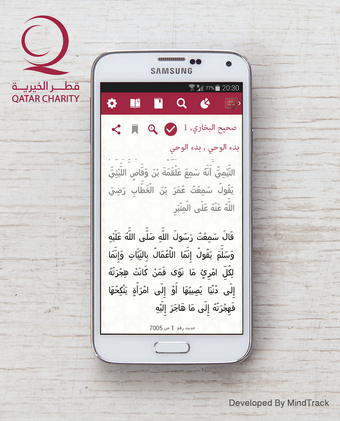 قطر الخيرية
QATAR CHARITY
SAMSUNG
77% 20:30
صحيح البخاري, 1
بدء الوحي , بدء الوحي
التَّيْمِيُّ أَنَّهُ سَمِعَ عَلْقَمَةَ بْنَ وَقَّاصٍ اللَّيْثِيَّ
يَقُولُ سَمِعْتُ عُمَرَ بْنَ الْخَطَّابِ رَضِيَ
اللَّهُ عَنْهُ عَلَى الْمِنْبَرِ
قَالَ سَمِعْتُ رَسُولَ اللَّهِ صَلَّى اللَّهُ عَلَيْهِ
وَسَلَّمَ يَقُولُ إِنَّمَا الْأَعْمَالُ بِالنِّيَّاتِ وَإِنَّمَا
لِكُلِّ امْرِئٍ مَا نَوَى فَمَنْ كَانَتْ هِجْرَتُهُ
إِلَى دُنْيَا يُصِيبُهَا أَوْ إِلَى امْرَأَةٍ يَنْكِحُهَا
فَهِجْرَتُهُ إِلَى مَا هَاجَرَ إِلَيْهِ
حديث رقم 1 من 7005
Developed By MindTrack